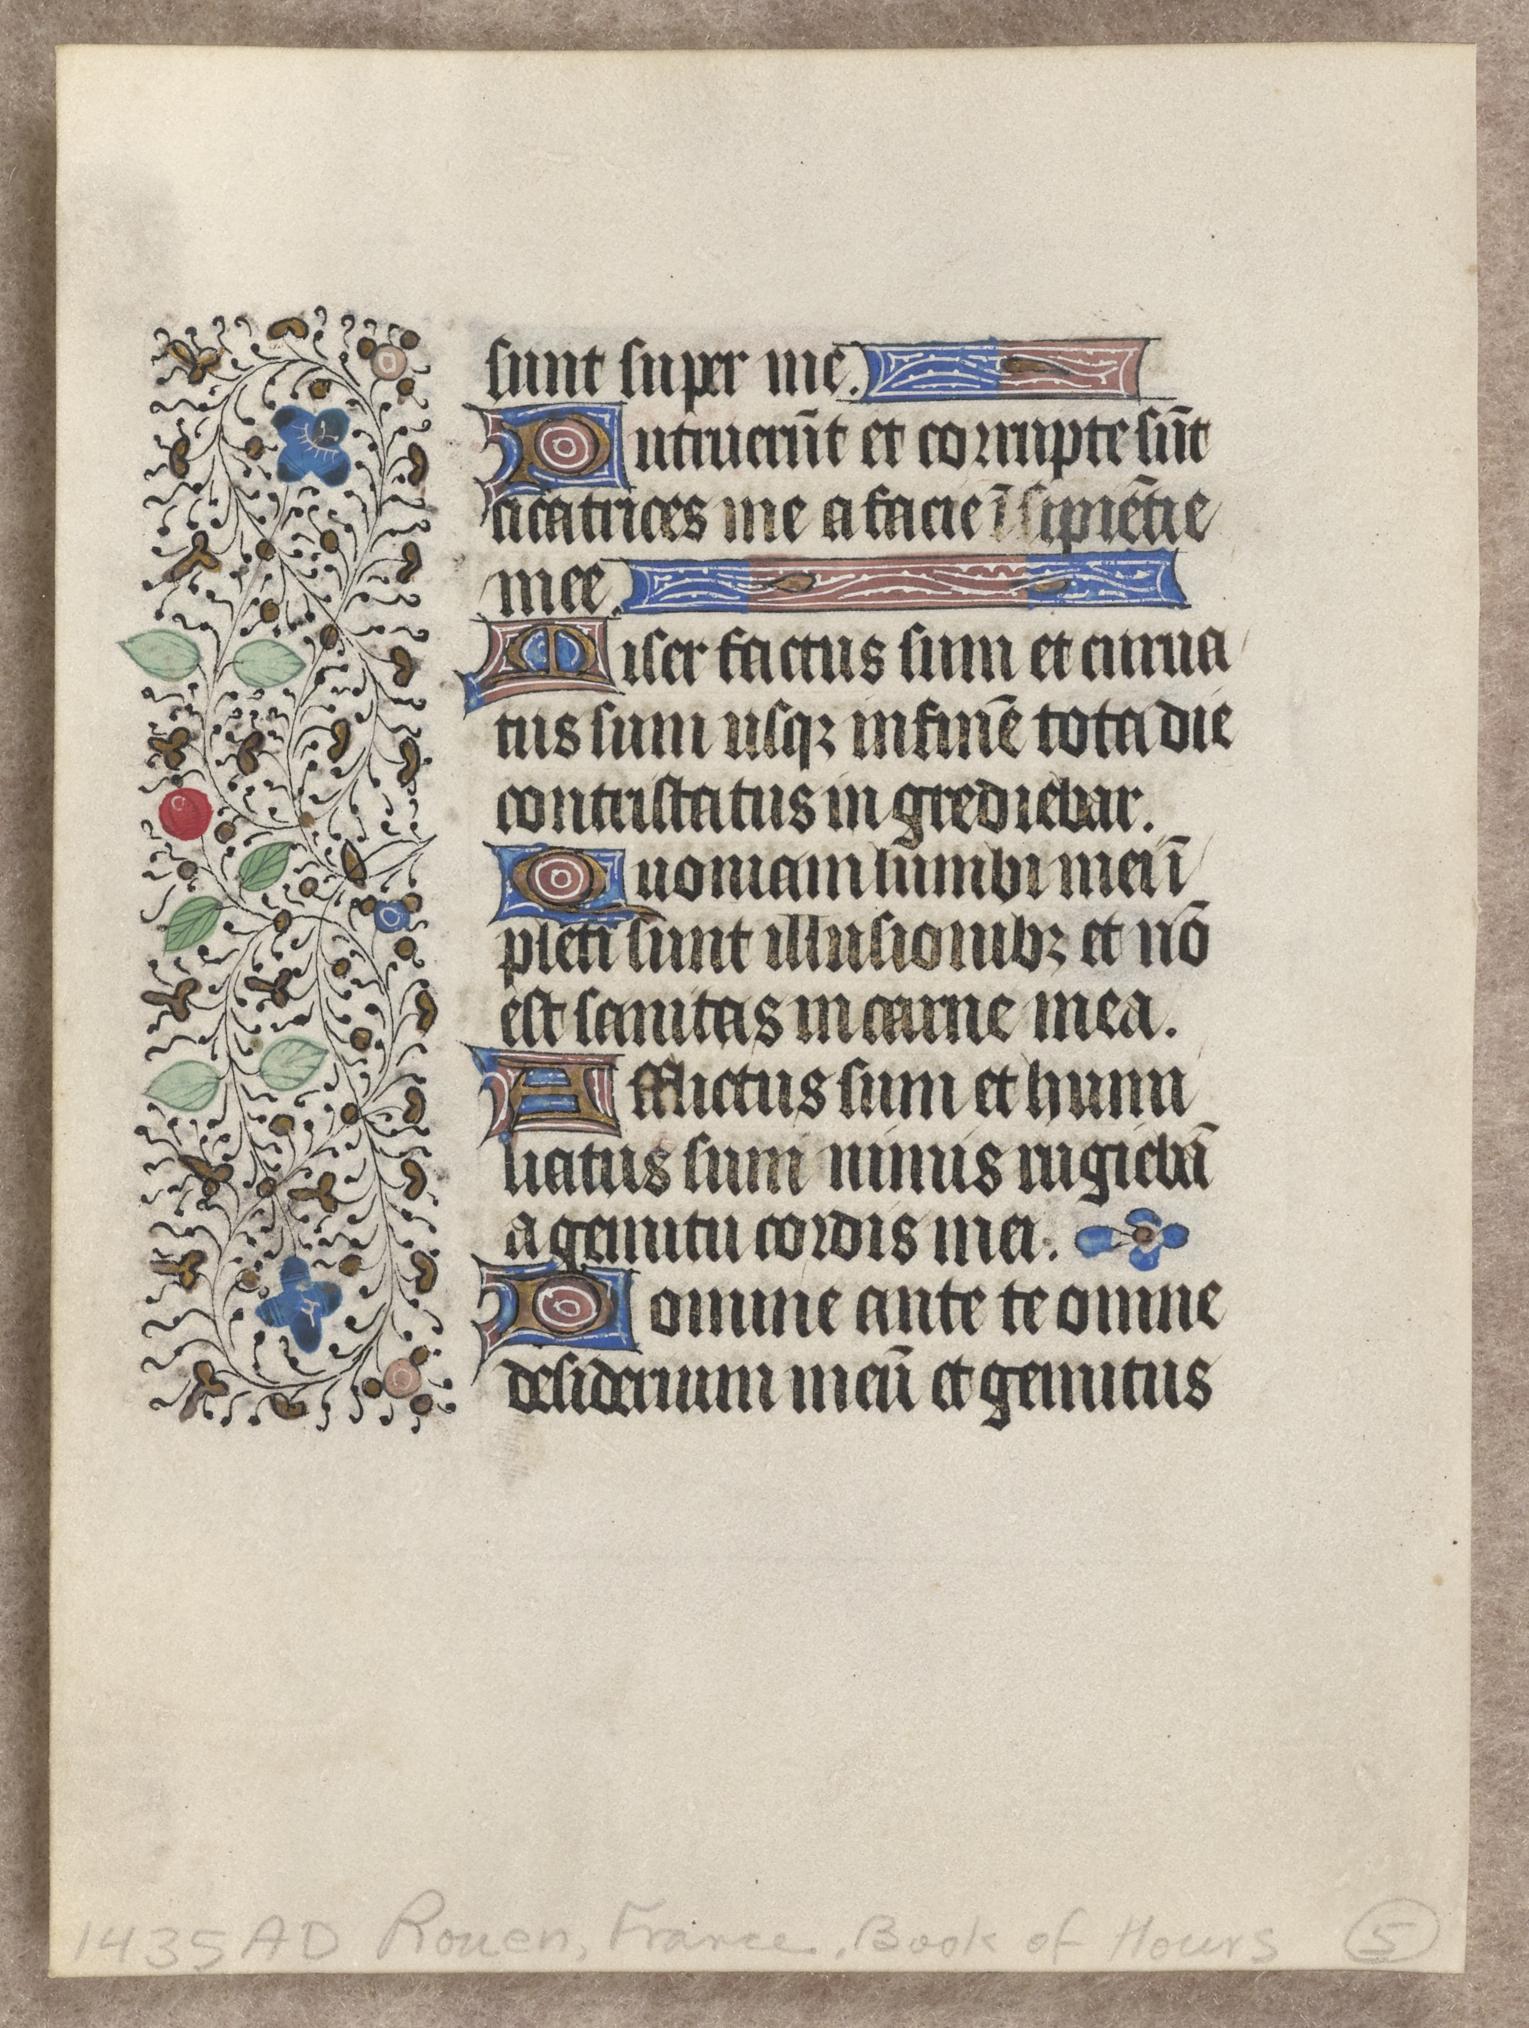 sunt super me.
Putruerūt et corrupte sūt
cicatrices me a facie īsipiētie
mee.
Miser factus sum et curua
tus sum usqꝫ in finē tota die
contristatus in grediebar.
Quoniam lumbi mei ī
pleti sunt illusionibꝫ et nō
est sanitas in carne mea.
Afflictus sum et humi
liatus sum nimis rugiebā
a gemitu cordis mei.
Domine ante te omne
desiderium meū et gemitus
1435 AD Rouen, France. Book of Hours 5